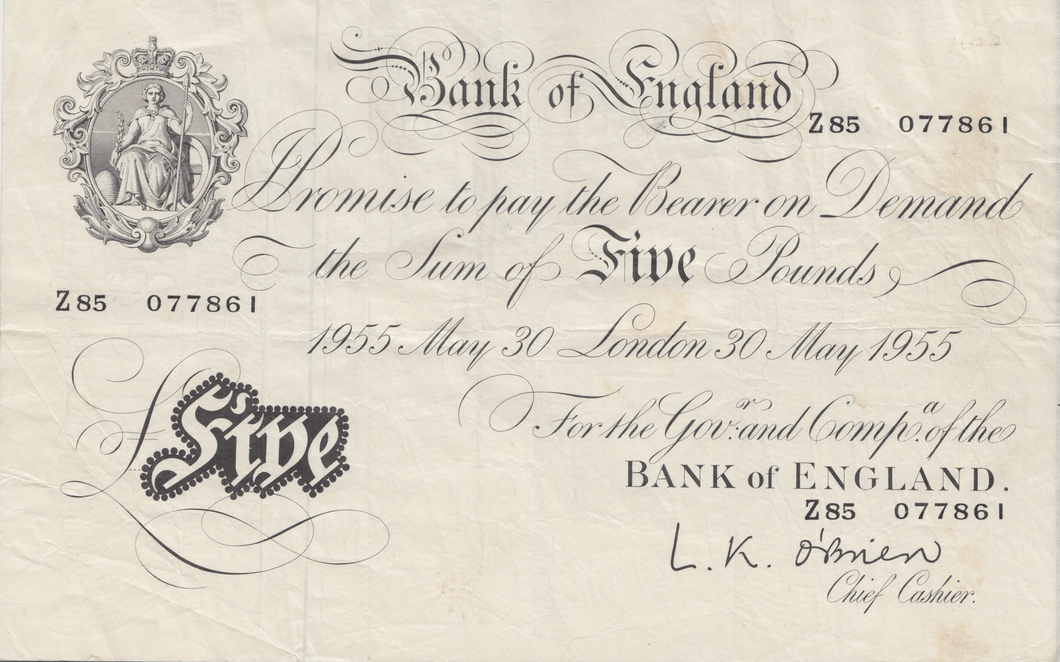 Bank of England
Z85 077861
I Promise to pay the Bearer on Demand
the Sum of Five Pounds
Z85 077861
1955 May 30 London 30 May 1955
For the Govr. and Compa. of the
BANK of ENGLAND.
£Five
Z85 077861
L. K. O'Brien
Chief Cashier.